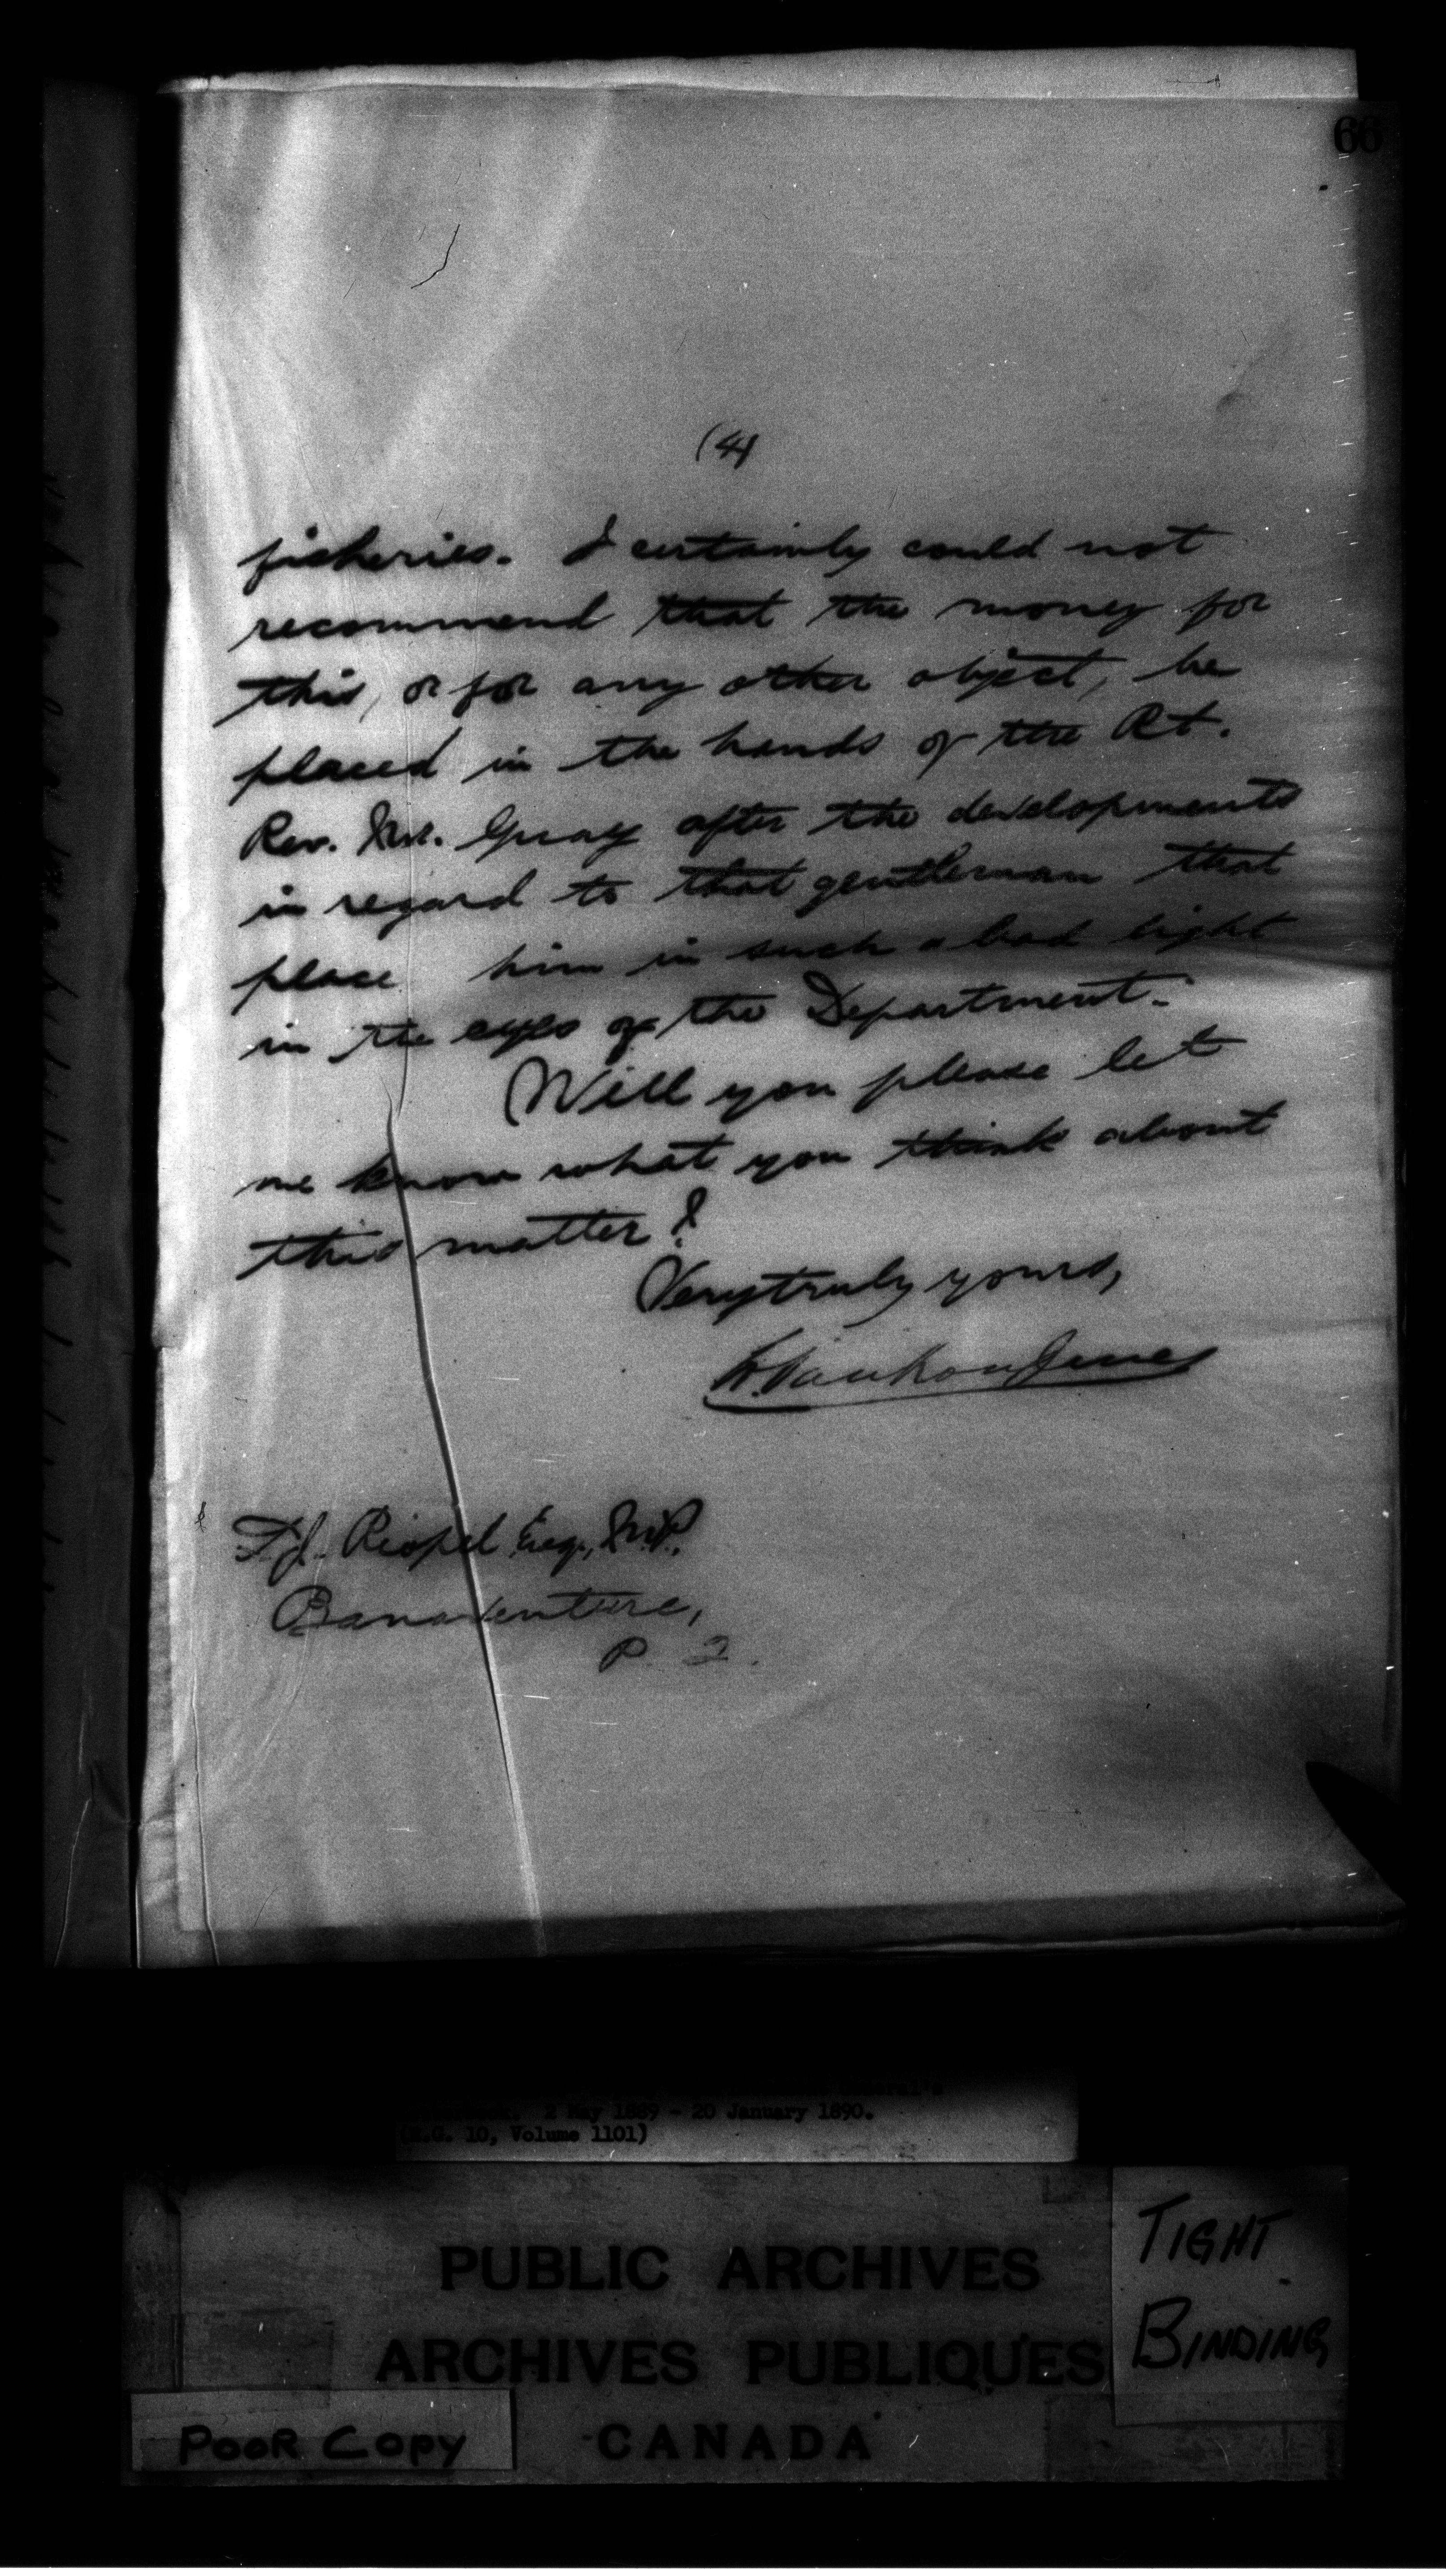 66
(4)
fisheries. I certainly could not
recommend that the money for
this, or for any other object, be
placed in the hands of the Rt.
Rev. Mr. Gray after the developments
in regard to that gentleman that
place him in such a bad light
in the eyes of the Department.
Will you please let
me know what you think about
this matter?
Very truly yours,
L. VanKoughnet
Riopel Esq., M.P.
Bonaventure,
P. Q.
General's
2 May 1889 - 20 January 1890.
(R.G. 10, Volume 1101)
PUBLIC ARCHIVES
ARCHIVES PUBLIQUES
CANADA
TIGHT
BINDING
POOR COPY